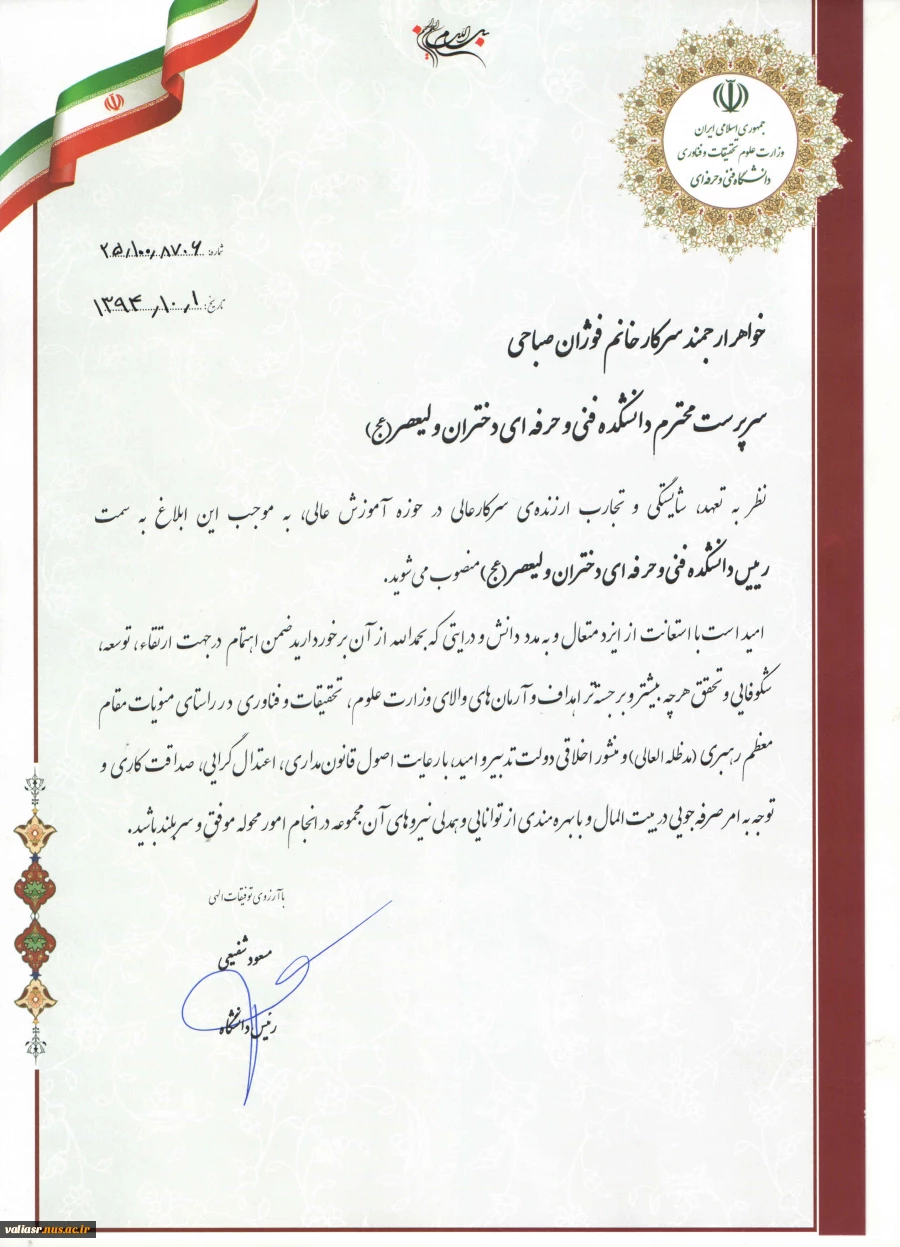 بسم الله الرحمن الرحیم
جمهوری اسلامی ایران
وزارت علوم تحقیقات و فناوری
دانشگاه فنی و حرفه‌ای
شماره: ۲۵/۱۰۰/۸۷۰۶
تاریخ: ۱۳۹۴/۱۰/۱
خواهر ارجمند سرکار خانم فوژان صباحی
سرپرست محترم دانشکده فنی و حرفه ای دختران ولیعصر (عج)
نظر به تعهد، شایستگی و تجارب ارزنده‌ی سرکارعالی در حوزه آموزش عالی، به موجب این ابلاغ به سمت
رییس دانشکده فنی و حرفه ای دختران ولیعصر (عج) منصوب می شوید.
امید است با استعانت از ایزد متعال و به مدد دانش و درایتی که بحمدالله از آن برخوردارید ضمن اهتمام در جهت ارتقاء، توسعه،
شکوفایی و تحقق هرچه بیشتر و برجسته‌تر اهداف و آرمان های والای وزارت علوم، تحقیقات و فناوری در راستای منویات مقام
معظم رهبری (مدظله العالی) و منشور اخلاقی دولت تدبیر و امید، با رعایت اصول قانون مداری، اعتدال گرایی، صداقت کاری و
توجه به امر صرفه جویی در بیت المال و با بهره مندی از توانایی و همدلی نیروهای آن مجموعه در انجام امور محوله موفق و سربلند باشید.
با آرزوی توفیقات الهی
مسعود شفیعی
رئیس دانشگاه
valiasr.nus.ac.ir